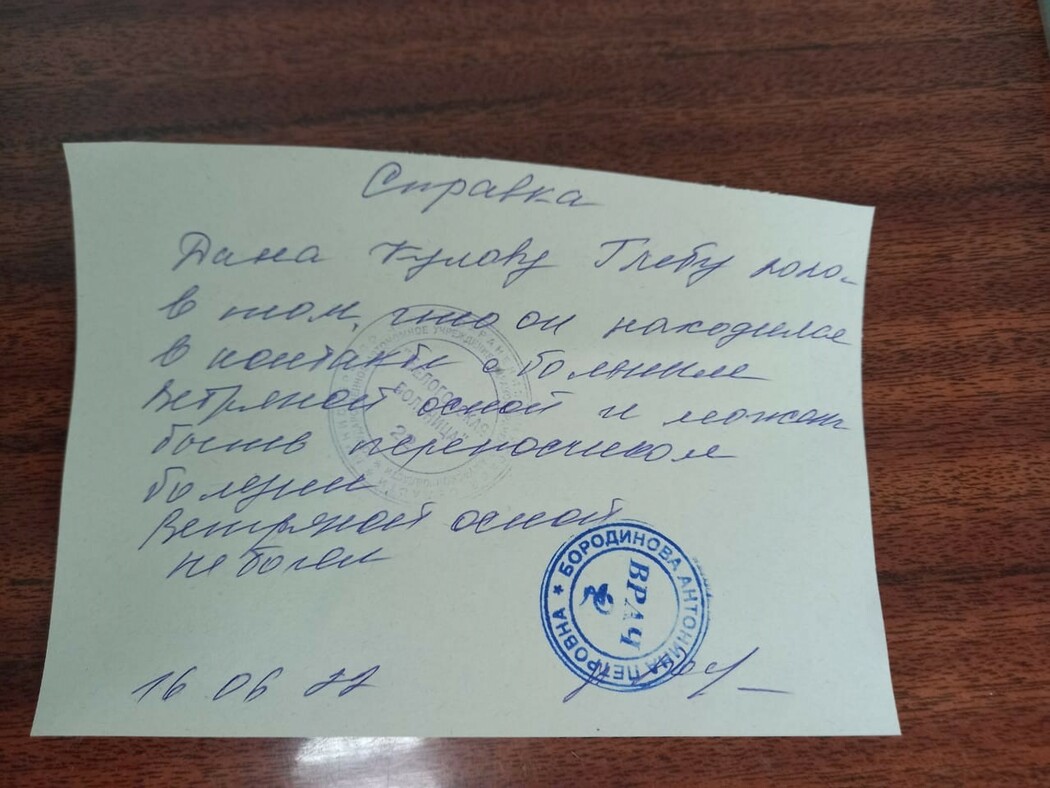 Справка
Дана Кулову Глебу
в том, что он находился
в контакте с больным
Ветряной оспой и может
быть переносчиком
болезни
Ветряной оспой
не болел
16 06 22
БОРОДИНОВА АНТОНИНА ПЕТРОВНА
ВРАЧ
БОЛЬНИЦА"